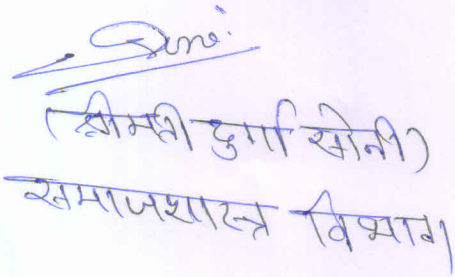 Soni
(श्रीमती दुर्गा सोनी)
समाजशास्त्र विभाग